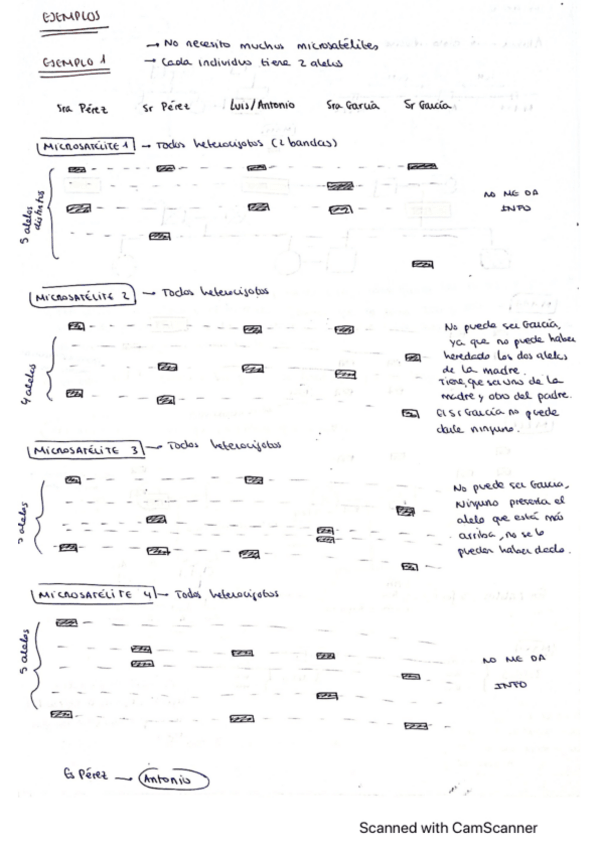 EJEMPLOS
→ No necesito muchos microsatélites
EJEMPLO 1 → Cada individuo tiene 2 alelos
Sra Pérez Sr Pérez Luis/Antonio Sra García Sr García
MICROSATÉLITE 1 → Todos heterocigotos (2 bandas)
5 alelos distintos
NO ME DA
INFO
MICROSATÉLITE 2 → Todos heterocigotos
4 alelos
No puede ser García,
ya que no puede haber
heredado los dos alelos
de la madre.
Tiene que ser uno de la
madre y otro del padre.
El Sr García no puede
darle ninguno.
MICROSATÉLITE 3 → Todos heterocigotos
alelos
No puede ser García,
Ninguno presenta el
alelo que está más
arriba, no se lo
pueden haber dado.
MICROSATÉLITE 4 → Todos heterocigotos
5 alelos
NO ME DA
INFO
Es Pérez → Antonio
Scanned with CamScanner